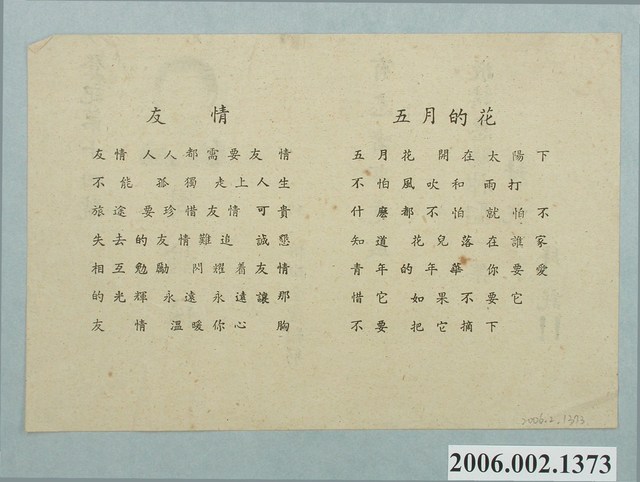 友情
友情 人人都需要友情
不能 孤獨 走上人生
旅途 要珍惜友情可貴
失去的友情難追 誠懇
相互勉勵 閃耀着友情
的光輝 永遠永遠讓那
友情 溫暖你心胸
五月的花
五月花 開在太陽下
不怕風吹和雨打
什麼都不怕 就怕不
知道 花兒落在誰家
青年的年華 你要愛
惜它 如果不要它
不要 把它摘下
2006.2.1373
2006.002.1373